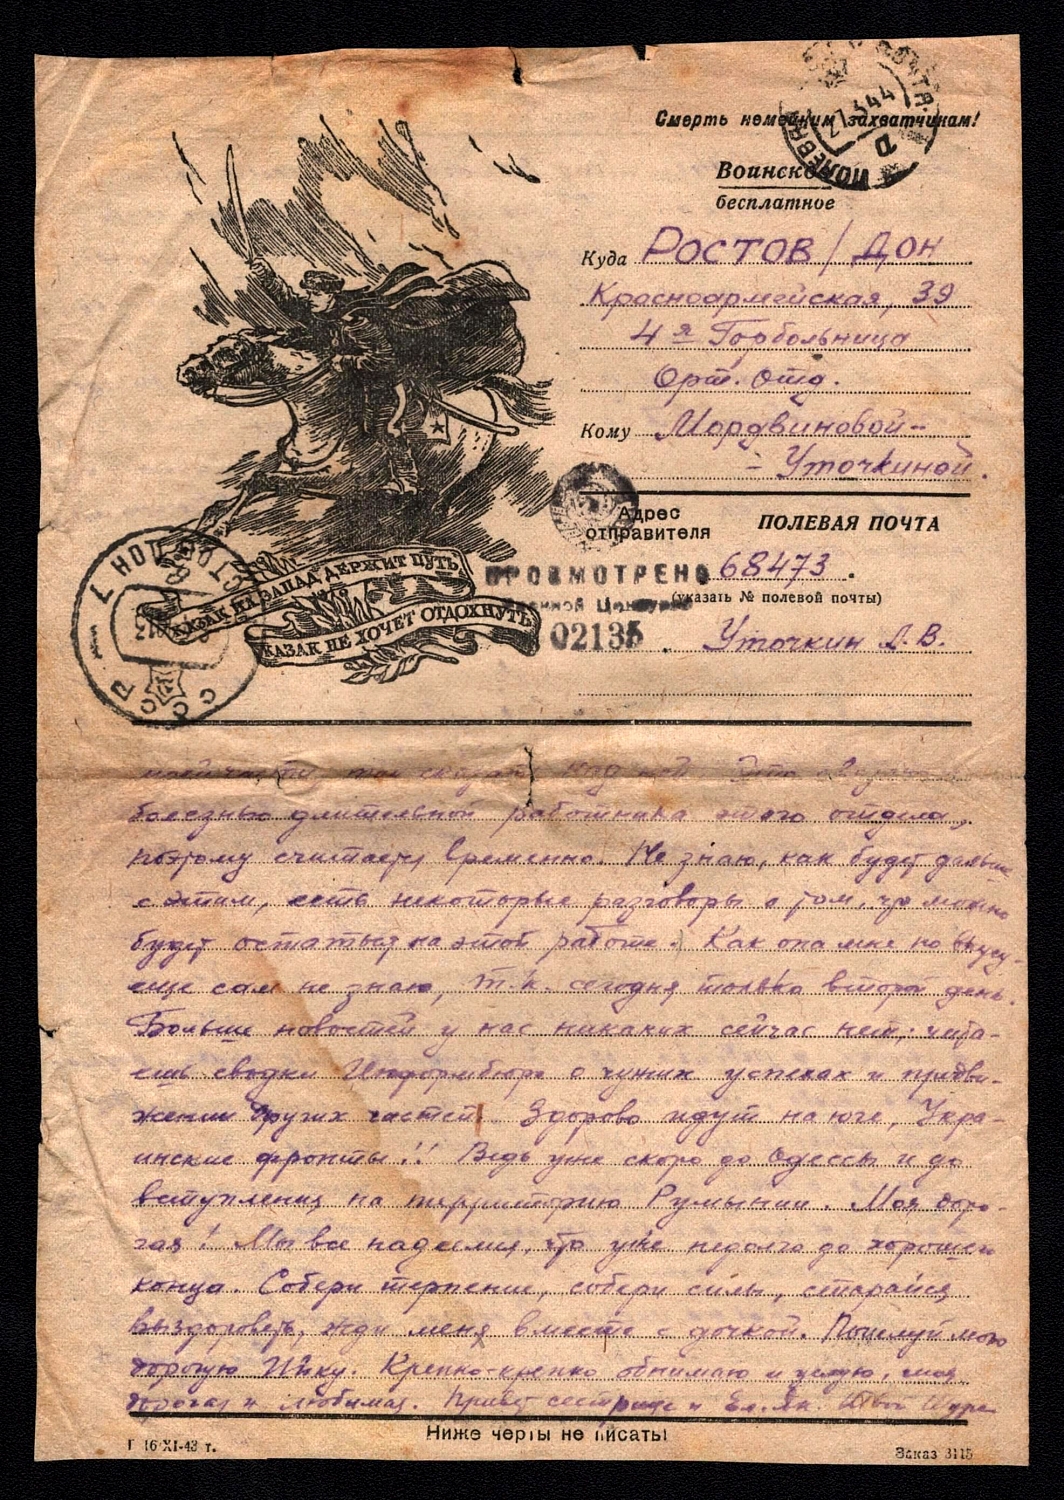 Смерть немецким захватчикам!
ПОЛЕВАЯ ПОЧТА
27 3 44
D
Воинское
бесплатное
Куда Ростов / Дон
Красноармейская, 39
4я Горбольница
Орт. отд.
Кому Мордвиновой-
- Уточкиной.
Адрес
отправителя
ПОЛЕВАЯ ПОЧТА
68473.
(указать № полевой почты)
Уточкин А. В.
ПРОСМОТРЕНО
Военной Цензурой
02135
КАЗАК НА ЗАПАД ДЕРЖИТ ПУТЬ,
КАЗАК НЕ ХОЧЕТ ОТДОХНУТЬ
СССР
над ней. Это
болезнью длительной работника этого отдела,
поэтому считается временно. Не знаю, как будет дальше
с этим, есть некоторые разговоры о том, что можно
будет остаться на этой работе. Как она мне по вкусу-
еще сам не знаю, т.к. сегодня только второй день.
Больше новостей у нас никаких сейчас нет; чита-
ешь сводки Информбюро о чужих успехах и продви-
жении других частей. Здорово идут на юге, Укра-
инские фронты!! Ведь уже скоро до Одессы и до
вступления на территорию Румынии. Моя доро-
гая! Мы все надеемся, что уже недолго до хорошего
конца. Собери терпение, собери силы, старайся
выздороветь, жди меня вместе с дочкой. Поцелуй мою
дорогую Инку. Крепко-крепко обнимаю и целую, моя
дорогая и любимая. Привет сестрице и Ел. Як. Твой Шура
Ниже черты не писать!
Г 16-XI-43 г.
Заказ 3115